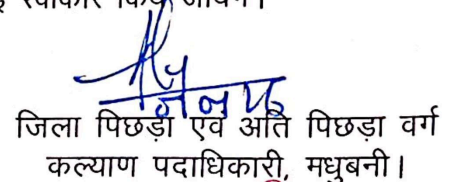 स्वीकार किये जायेंगे।
जिला पिछड़ा एवं अति पिछड़ा वर्ग
कल्याण पदाधिकारी, मधुबनी।